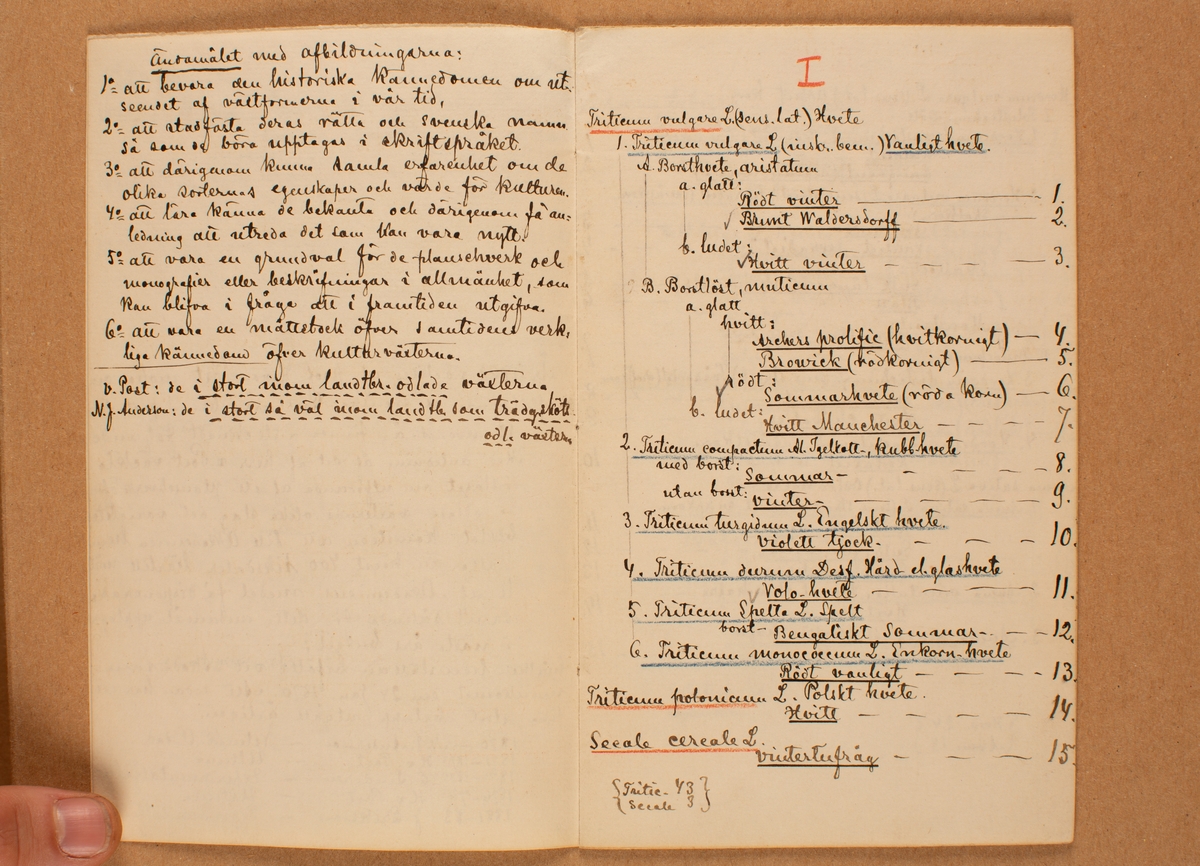 Ändamålet med afbildningarna:
1º att bevara den historiska kännedomen om ut-
seendet af växtformerna i vår tid,
2º att stadfästa deras rätta och svenska namn
så som de böra upptagas i skriftspråket.
3º att därigenom kunna samla erfarenhet om de
olika sorternas egenskaper och värde för kulturen.
4º att lära känna de bekanta och därigenom få an-
ledning att utreda det som kan vara nytt.
5º att vara en grundval för de planschverk och
monografier eller beskrifningar i allmänhet, som
kan blifva i fråga att i framtiden utgifva.
6º att vara en måttstock öfver samtidens verk-
liga kännedom öfver kulturväxterna.
v. Post: de i stort inom landtbr. odlade växterna
N.J. Anderson: de i stort så väl inom landtbr. som trädgsköts.
odl. växterna
I
Triticum vulgare L. (sens. lat.) Hvete
1. Triticum vulgare L. (insk. bem.) Vanligt hvete.
A. Borsthvete, aristatum
a. glatt:
Rödt vinter 1.
Brunt Waldersdorff 2.
b. ludet:
Hvitt vinter 3.
B. Borstlöst, muticum
a. glatt
hvitt:
Archers prolific (hvitkornigt) 4.
Browick (rödkornigt) 5.
rödt:
Sommarhvete (röda korn) 6.
b. ludet:
Hvitt Manchester 7.
2. Triticum compactum Al. Igelkott-, kubbhvete
med borst:
Sommar 8.
utan borst:
vinter 9.
3. Triticum turgidum L. Engelskt hvete.
violett tjock. 10.
4. Triticum durum Desf. Hård el. glashvete
Volo-hvete 11.
5. Triticum Spelta L. Spelt
borst- Bengaliskt Sommar- 12.
6. Triticum monococcum L. Enkorn-hvete
Rödt vanligt 13.
Triticum polonicum L. Polskt hvete.
Hvitt 14.
Secale cereale L.
vintertufråg 15.
{Tritic- 43}
{Secale 3}